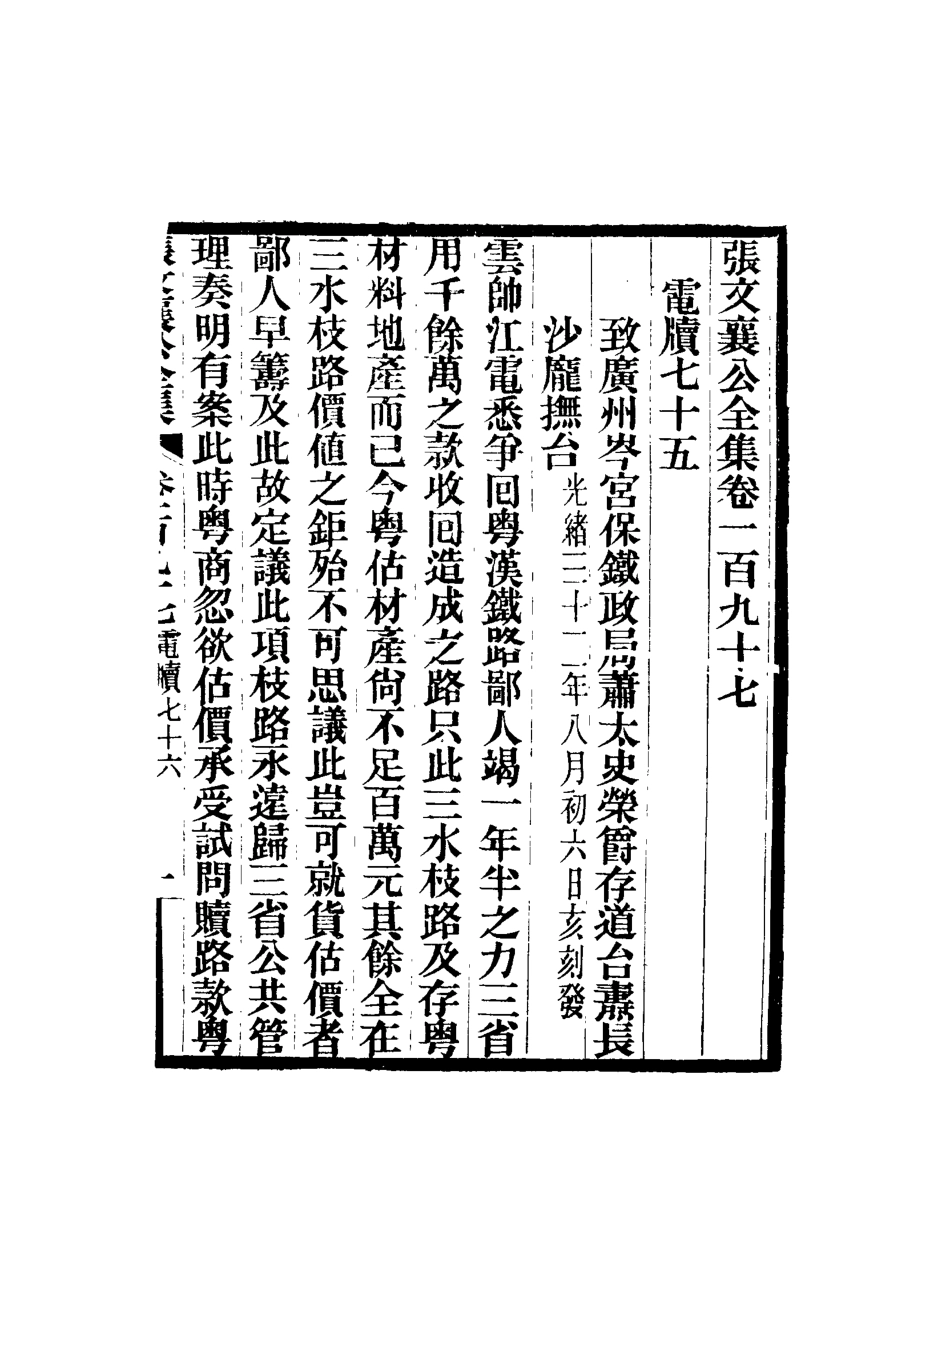 張文襄公全集卷一百九十七
電牘七十五
致廣州岑宮保鐵政局蕭太史榮爵存道台燾長
沙龐撫台光緒三十二年八月初六日亥刻發
雲帥江電悉爭回粤漢鐵路鄙人竭一年半之力三省
用千餘萬之款收回造成之路只此三水枝路及存粤
材料地產而已今粤估材產尙不足百萬元其餘全在
三水枝路價値之鉅殆不可思議此豈可就貨估價者
鄙人早籌及此故定議此項枝路永遠歸三省公共管
理奏明有案此時粤商忽欲估價承受試問贖路款粤
張文襄公全集 卷一百九十七 電牘七十六 一